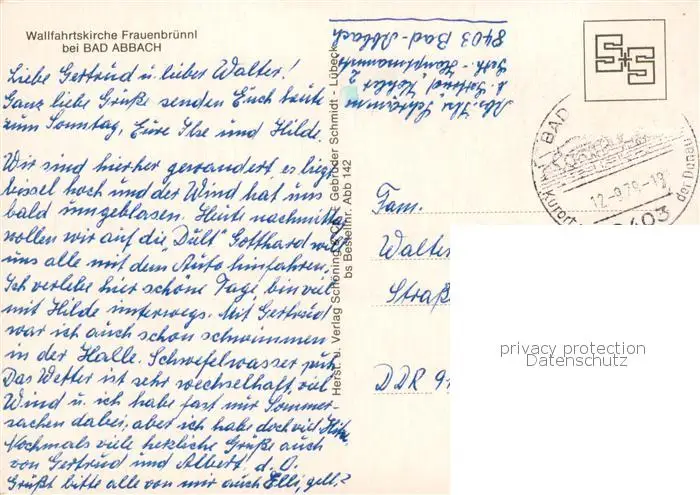 Wallfahrtskirche Frauenbrünnl
bei BAD ABBACH
Liebe Gertrud u. lieber Walter!
Ganz liebe Grüße senden Euch heute
zum Sonntag, Eure Ilse und Hilde.
Wir sind hierher gewandert, es liegt
bissel hoch und der Wind hat uns
bald umgeblasen. Heute nachmittag
wollen wir auf die "Dult" Gotthard will
uns alle mit dem Auto hinfahren.
Ich verlebe hier schöne Tage, bin viel
mit Hilde unterwegs. Mit Gertrud
war ich auch schon schwimmen
in der Halle. Schwefelwasser puh.
Das Wetter ist sehr wechselhaft, viel
Wind u. ich habe fast nur Sommer-
sachen dabei, aber ich habe doch viel Hitze.
Nochmals viele herzliche Grüße auch
von Gertrud und Albert. d. O.
Grüßt bitte alle von mir auch Elli, gell?
Herst. u. Verlag Schöning & Co + Gebrüder Schmidt - Lübeck
bs Bestellnr. Abb 142
Abs. Ilse
8403 Bad-Abbach
S+S
BAD
12.-9.78-18
Kurort
der Donau
8403
Fam.
Walter
Straß
DDR 91
privacy protection
Datenschutz